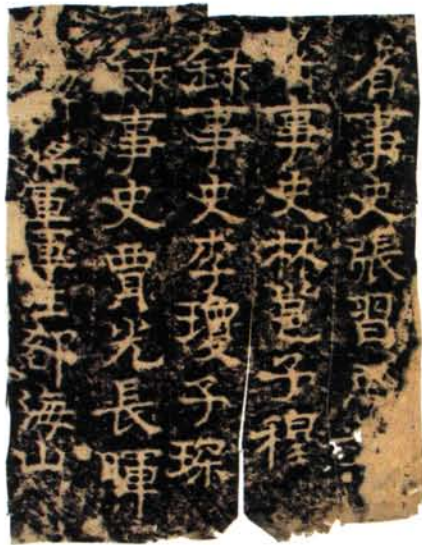 省事史張習
事史林邕子程
録事史李瓊子琛
録事史賈光長暉
將軍軍主郃海山